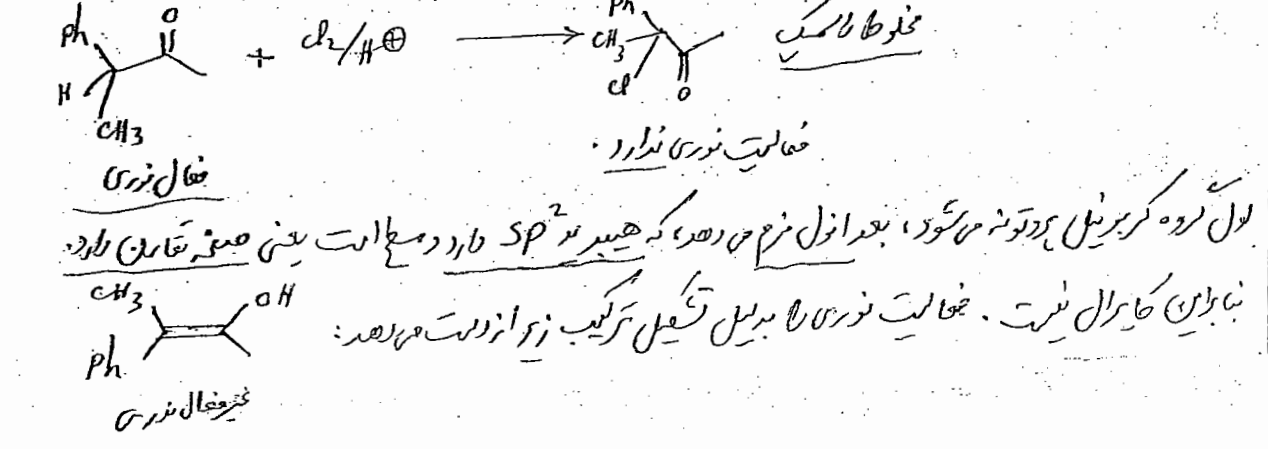 Ph O
H CH3 + Cl2/H⊕ ⟶ Ph CH3 Cl O مخلوط راسمیک
فعالیت نوری ندارد.
فعال نوری
اول گروه کربونیل پروتونه می‌شود، بعد انول فرم می‌دهد، که هیبرید sp² دارد و مسطح است یعنی صفحه تقارن دارد.
بنابراین کایرال نیست. فعالیت نوری را بدلیل تشکیل ترکیب زیر از دست می‌دهد:
CH3 OH
Ph
غیرفعال نوری